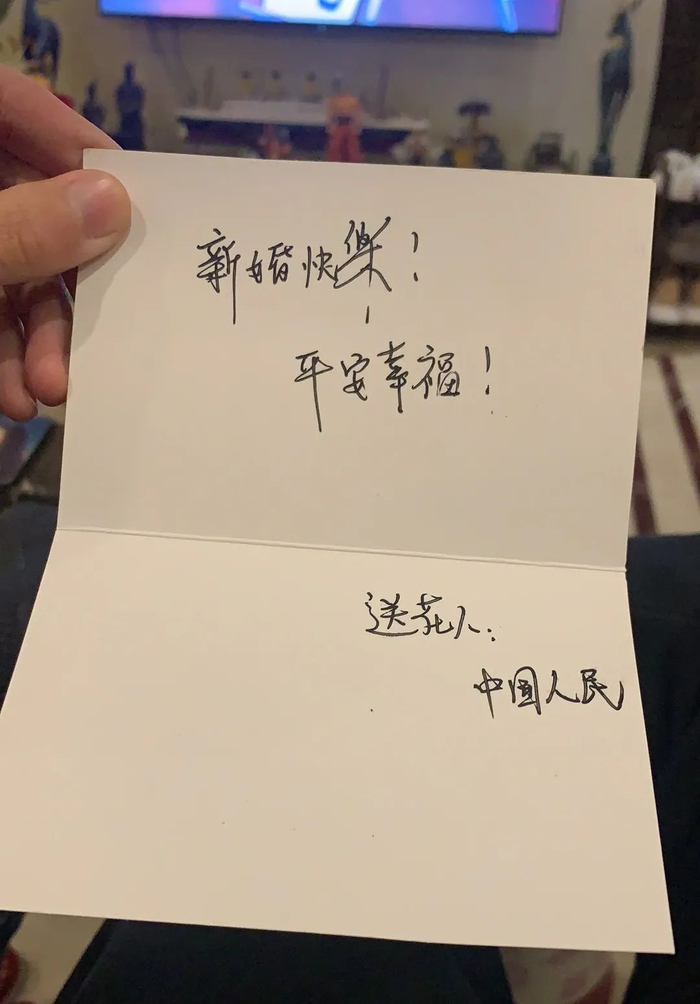 新婚快樂！
平安幸福！
送花人：
中国人民